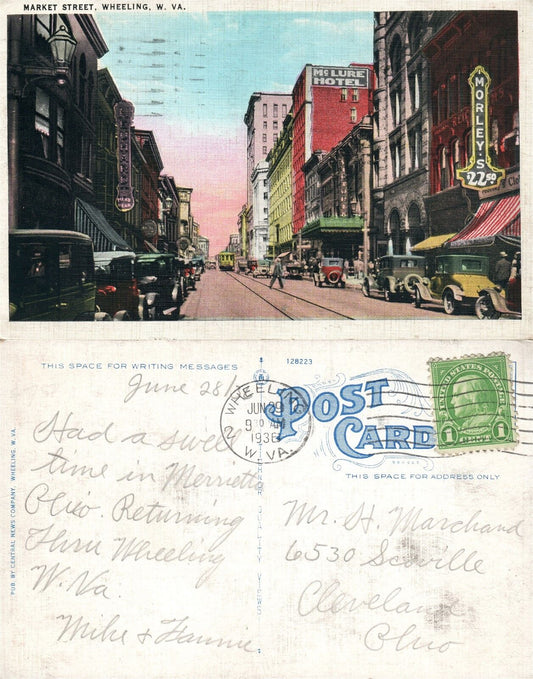 MARKET STREET, WHEELING, W. VA.
McLURE
HOTEL
MORLEY'S
$22.50
THIS SPACE FOR WRITING MESSAGES
128223
POST
CARD
THIS SPACE FOR ADDRESS ONLY
PUB. BY CENTRAL NEWS COMPANY, WHEELING, W. VA.
WHEELING
JUN 29
9 30 AM
1936
W. VA.
UNITED STATES POSTAGE
1 CENT 1
June 28/
Had a swell
time in Merrietta
Ohio. Returning
Thru Wheeling
W. Va.
Mike & Fannie
Mr. H. Marchand
6530 Scoville
Cleveland
Ohio